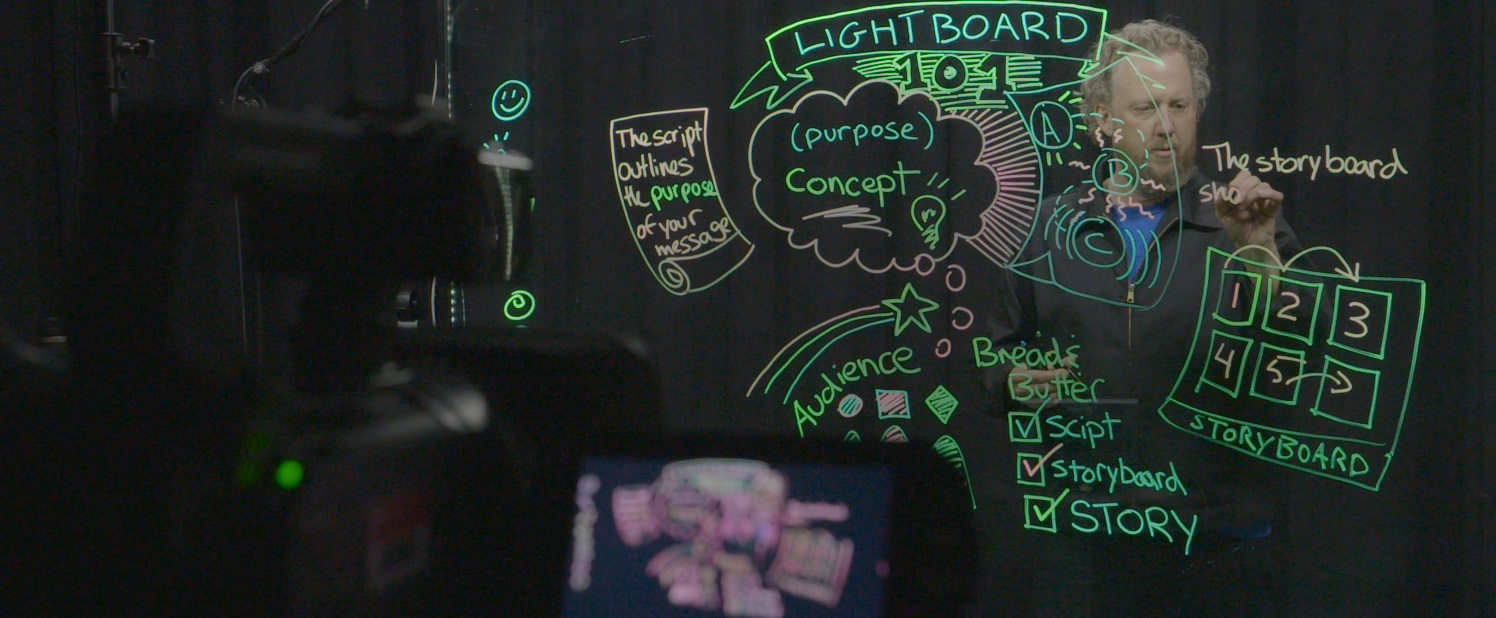 LIGHTBOARD
101
The script
outlines
the purpose
of your
message
(purpose)
Concept
A
B
C
The storyboard
sho
1 2 3
4 5
STORYBOARD
Audience
Bread &
Butter
Scipt
storyboard
STORY